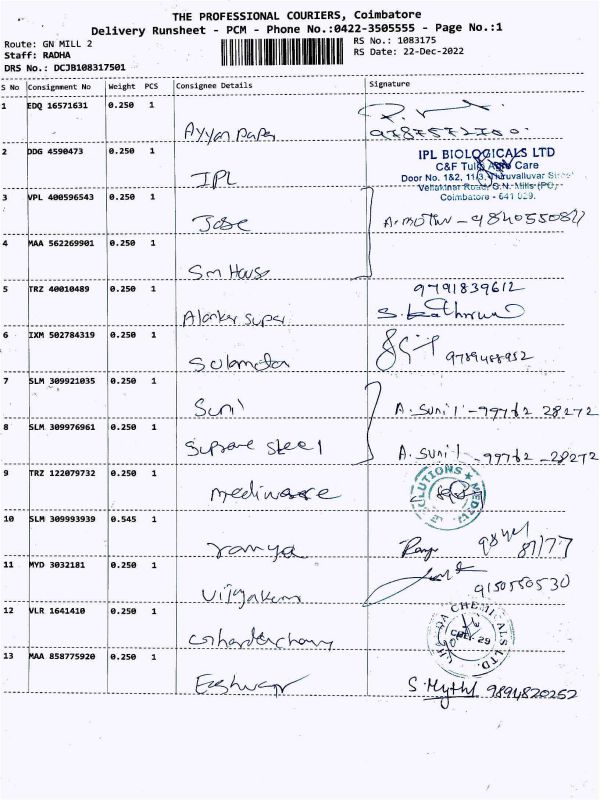 THE PROFESSIONAL COURIERS, Coimbatore
Delivery Runsheet - PCM - Phone No.:0422-3505555 - Page No.:1
Route: GN MILL 2
RS No.: 1083175
Staff: RADHA
RS Date: 22-Dec-2022
DRS No.: DCJB108317501
S No Consignment No Weight PCS Consignee Details Signature
1 EDQ 16571631 0.250 1
Ayyan papa
2 DDG 4590473 0.250 1
IPL BIOLOGICALS LTD
C&F Care
Door No. 1&2, 11/3, Thiruvalluvar Street
Vellakinar Road, G.N. Mills (PO),
Coimbatore - 641 029.
IPL
3 VPL 400596543 0.250 1
Jose
4 MAA 562269901 0.250 1
Sm House
5 TRZ 40010489 0.250 1
9791839612
Alankar super
6 IXM 502784319 0.250 1
9789488952
7 SLM 309921035 0.250 1
Sunil A. Sunil - 99762 28272
8 SLM 309976961 0.250 1
Supreme steel A. Sunil - 99762 - 28272
9 TRZ 122079732 0.250 1
10 SLM 309993939 0.545 1
ramya
11 MYD 3032181 0.250 1
Vijayakum 9150550530
12 VLR 1641410 0.250 1
CHEMICALS LTD.
13 MAA 858775920 0.250 1
Eashwar S. Mythl 9894820252